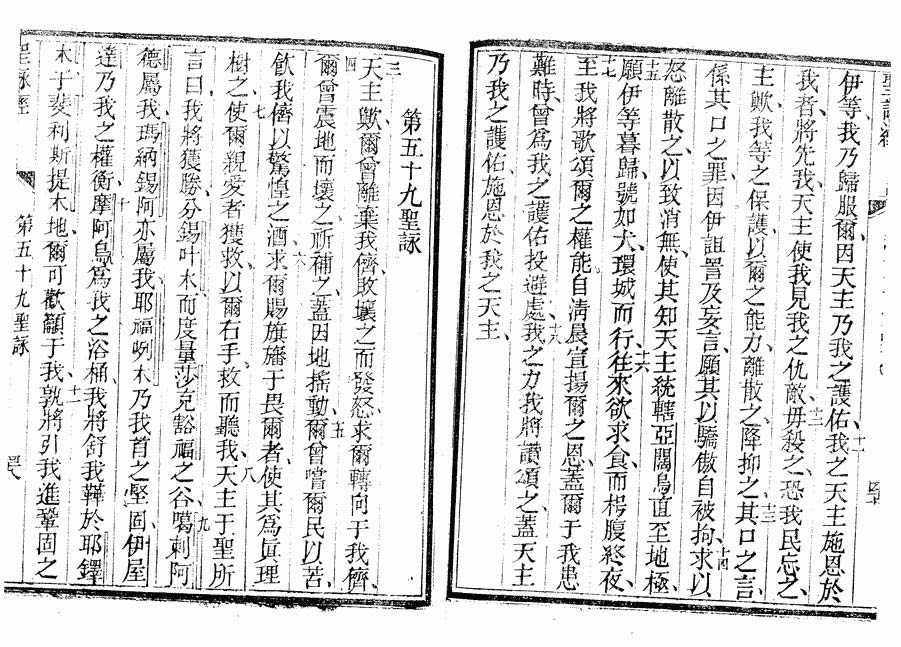 伊等、我乃歸服爾、因天主乃我之護佑、我之天主施恩於
十一
我者、將先我、天主使我見我之仇敵、毋殺之、恐我民忘之、
十二
主歟、我等之保護、以爾之能力、離散之、降抑之、其口之言、
十三
係其口之罪、因伊詛詈及妄言、願其以驕傲自被拘、求以
十四
怒離散之、以致消無、使其知天主統轄亞闊烏、直至地極、
十五
願伊等暮歸、號如犬、環城而行、往來欲求食、而枵腹終夜、
十六
十七
至我將歌頌爾之權能、自清晨宣揚爾之恩、蓋爾于我患
難時、曾為我之護佑、投避處、我之力、我將讚頌之、蓋天主
十八
乃我之護佑、施恩於我之天主、
第五十九聖詠
三
天主歟、爾曾離棄我儕、敗壞之、而發怒、求爾轉向于我儕、
四
爾曾震地而壞之、祈補之、蓋因地搖動、爾曾嘗爾民以苦、
五
飲我儕以驚惶之酒、求爾賜旗旛于畏爾者、使其為眞理
六
樹之、使爾親愛者獲救、以爾右手、救而聽我、天主于聖所
七
八
言曰、我將獲勝、分錫叶木、而度量莎克豁福之谷、噶剌阿
九
德屬我、瑪納錫阿亦屬我、耶福咧木乃我首之堅固、伊屋
達乃我之權衡、摩阿烏為我之浴桶、我將舒我鞾於耶鐸
十
木于斐利斯提木地、爾可歡籲于我、孰將引我進鞏固之
十一
聖詠經
第五十九聖詠